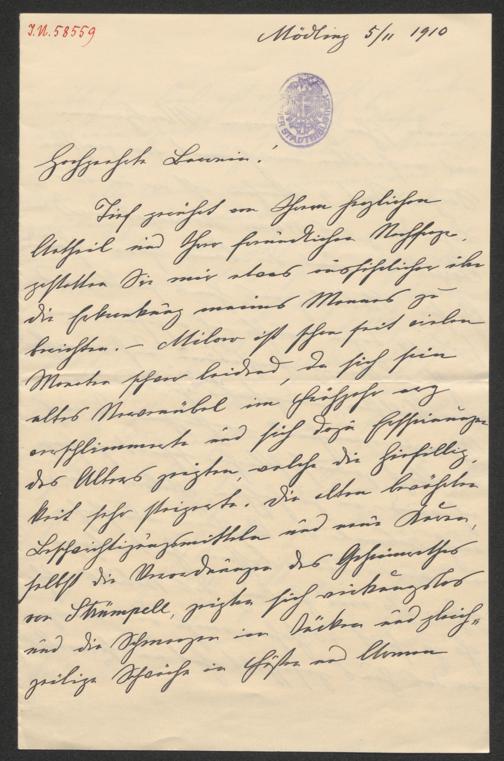 I.N. 58559
Mödling 5/11 1910
Hochgeehrte Baronin!
Tief gerührt von Ihrem herzlichen
Antheil und Ihrer freundlichen Nachfrage,
gestatten Sie mir etwas ausführlicher über
die Erkrankung meines Mannes zu
berichten. – Milow ist schon seit vielen
Monaten schwer leidend, da sich sein
altes Nervenübel im Frühjahr arg
verschlimmerte und sich dazu Erscheinungen
des Alters zeigten, welche die Hinfällig-
keit sehr steigerte. Die alten bewährten
Beschwichtigungsmitteln und neue Kuren,
selbst die Verordnungen des Geheimrathes
von Strümpell, zeigten sich wirkungslos
und die Schmerzen im Rücken und gleich-
zeitige Schwäche in Füßen und Armen